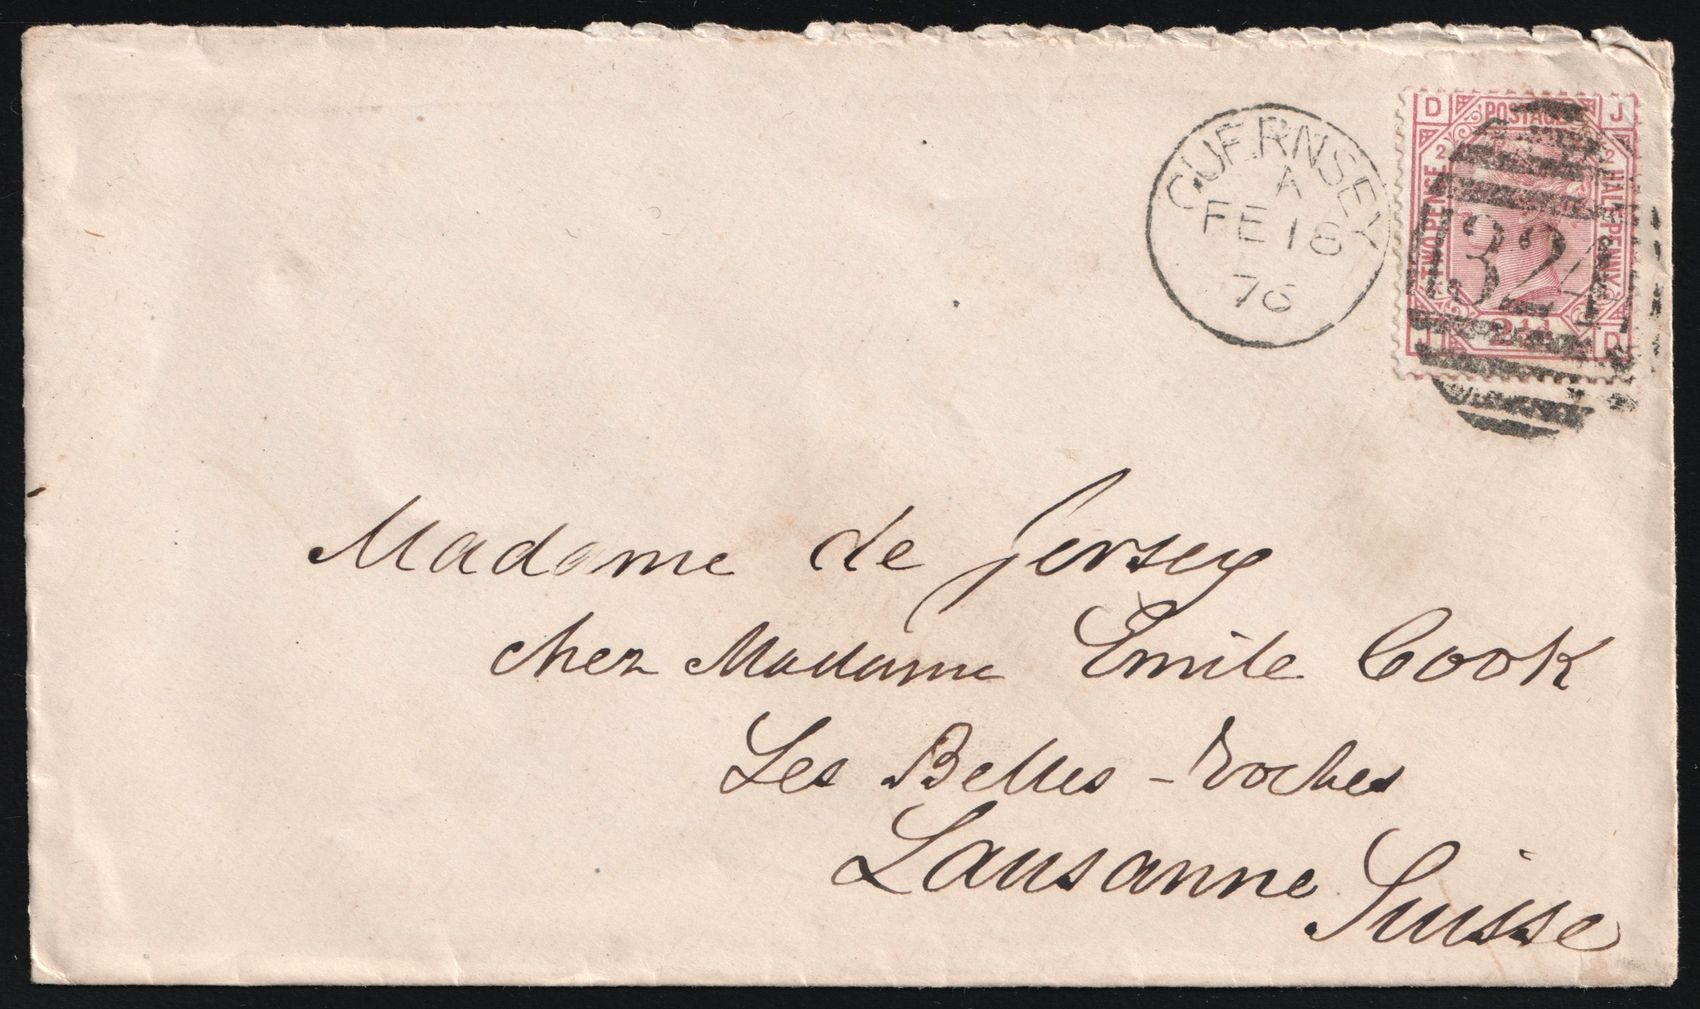 GUERNSEY
A
FE 18
76
D POSTAGE J
2 2
TWOPENCE HALFPENNY
324
J 2½d D
Madame de Jersey
chez Madame Emile Cook
Les Belles-roches
Lausanne Suisse